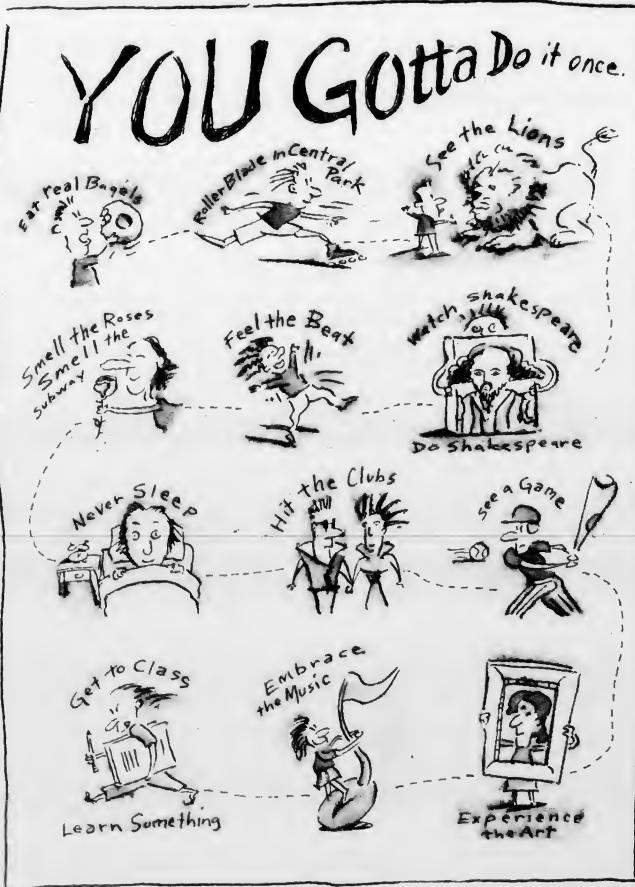 YOU Gotta Do it once.
Eat real Bagels
RollerBlade in Central Park
See the Lions
Smell the Roses
Smell the
Subway
Feel the Beat
Watch Shakespeare
Do Shakespeare
Never Sleep
Hit the Clubs
See a Game
Get to Class
Learn Something
Embrace
the Music
Experience
the Art